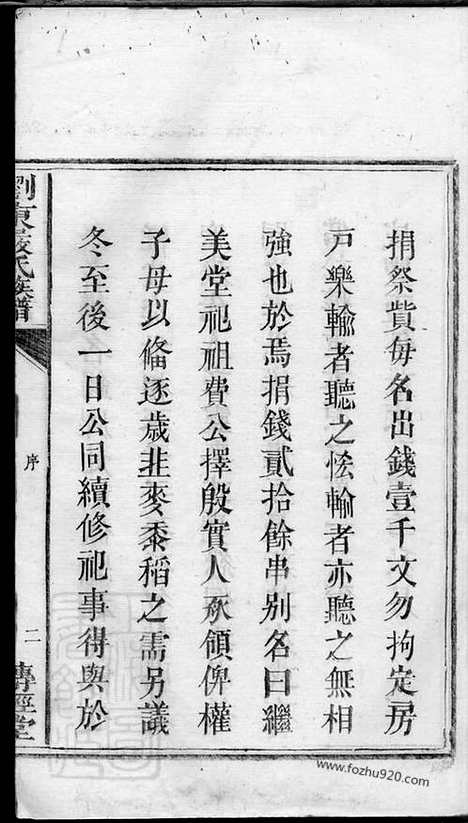 捐祭貲每名出錢壹千文勿拘定房
戶樂輸者聽之恡輸者亦聽之無相
強也於焉捐錢貳拾餘串别名曰繼
美堂祀祖費公擇殷實人承領俾權
子母以偹逐歲韭麥黍稻之需另議
冬至後一日公同續修祀事得與於
劉東嚴氏族譜
序
二
傳經堂
www.fozhu920.com